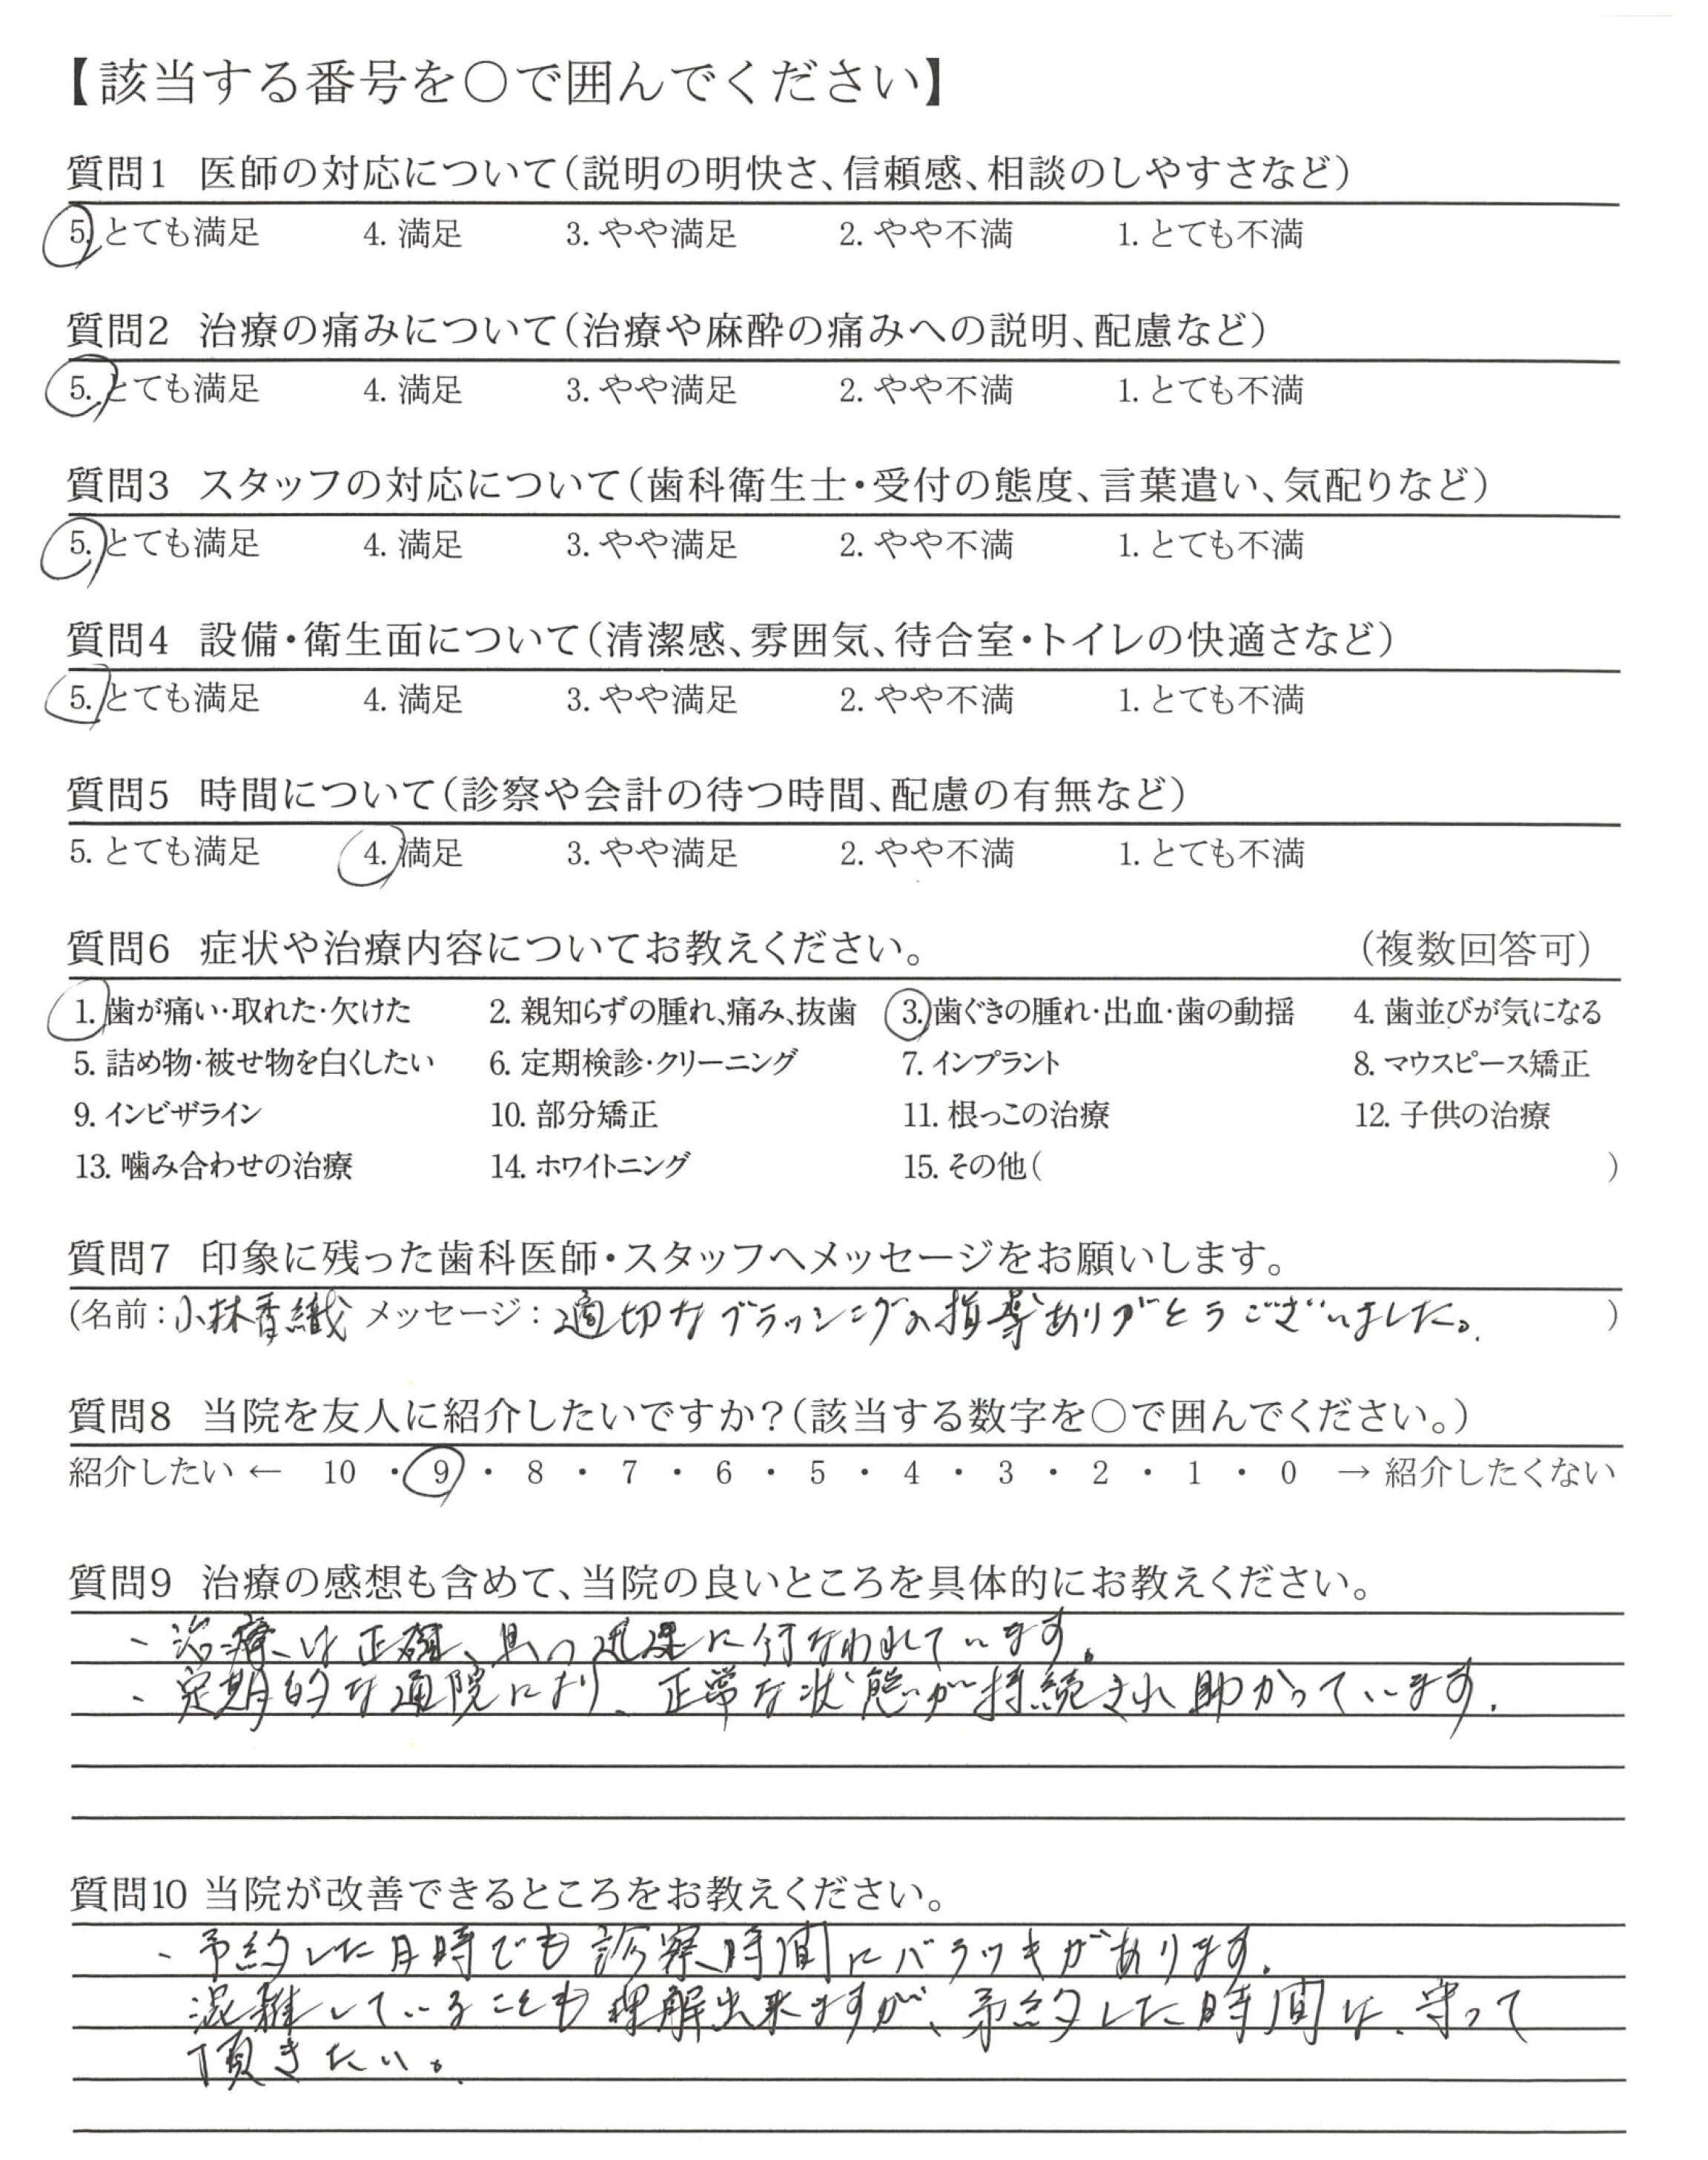 【該当する番号を○で囲んでください】
質問1 医師の対応について(説明の明快さ、信頼感、相談のしやすさなど)
5. とても満足 4. 満足 3. やや満足 2. やや不満 1. とても不満
質問2 治療の痛みについて(治療や麻酔の痛みへの説明、配慮など)
5. とても満足 4. 満足 3. やや満足 2. やや不満 1. とても不満
質問3 スタッフの対応について(歯科衛生士・受付の態度、言葉遣い、気配りなど)
5. とても満足 4. 満足 3. やや満足 2. やや不満 1. とても不満
質問4 設備・衛生面について(清潔感、雰囲気、待合室・トイレの快適さなど)
5. とても満足 4. 満足 3. やや満足 2. やや不満 1. とても不満
質問5 時間について(診察や会計の待つ時間、配慮の有無など)
5. とても満足 4. 満足 3. やや満足 2. やや不満 1. とても不満
質問6 症状や治療内容についてお教えください。 (複数回答可)
1. 歯が痛い・取れた・欠けた 2. 親知らずの腫れ、痛み、抜歯 3. 歯ぐきの腫れ・出血・歯の動揺 4. 歯並びが気になる
5. 詰め物・被せ物を白くしたい 6. 定期検診・クリーニング 7. インプラント 8. マウスピース矯正
9. インビザライン 10. 部分矯正 11. 根っこの治療 12. 子供の治療
13. 噛み合わせの治療 14. ホワイトニング 15. その他( )
質問7 印象に残った歯科医師・スタッフへメッセージをお願いします。
(名前:小林香織 メッセージ:適切なブラッシングの指導ありがとうございました。 )
質問8 当院を友人に紹介したいですか?(該当する数字を○で囲んでください。)
紹介したい ← 10 ・ 9 ・ 8 ・ 7 ・ 6 ・ 5 ・ 4 ・ 3 ・ 2 ・ 1 ・ 0 → 紹介したくない
質問9 治療の感想も含めて、当院の良いところを具体的にお教えください。
、治療は正確、且つ迅速に行なわれています。
、定期的な通院により、正常な状態が持続され助かっています。
質問10 当院が改善できるところをお教えください。
、予約した日時でも診察時間にバラツキがあります。
混雑していることも理解出来ますが、予約した時間は、守って
頂きたい。